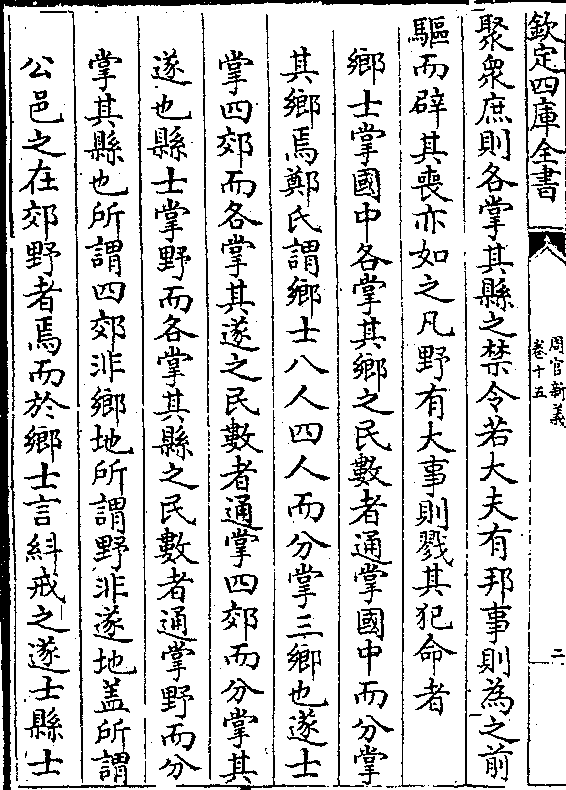 欽定四庫全書
周官新義
卷十五
二
聚衆庶則各掌其縣之禁令若大夫有邦事則為之前
驅而辟其喪亦如之凡野有大事則戮其犯命者
鄉士掌國中各掌其鄉之民數者通掌國中而分掌
其鄉焉鄭氏謂鄉士八人四人而分掌三鄉也遂士
掌四郊而各掌其遂之民數者通掌四郊而分掌其
遂也縣士掌野而各掌其縣之民數者通掌野而分
掌其縣也所謂四郊非鄉地所謂野非遂地盖所謂
公邑之在郊野者焉而於鄉士言糾戒之遂士縣士